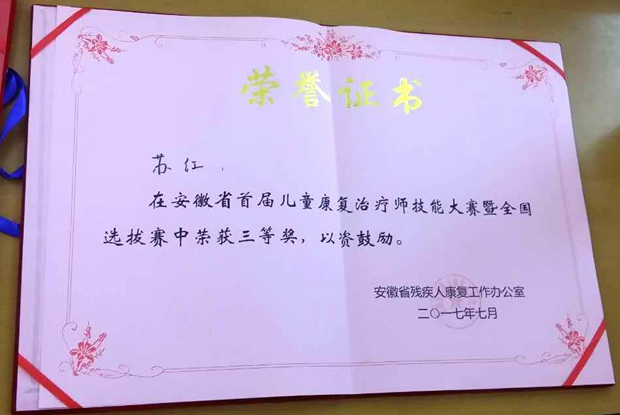 荣誉证书
苏红：
在安徽省首届儿童康复治疗师技能大赛暨全国
选拔赛中荣获三等奖，以资鼓励。
安徽省残疾人康复工作办公室
二〇一七年七月